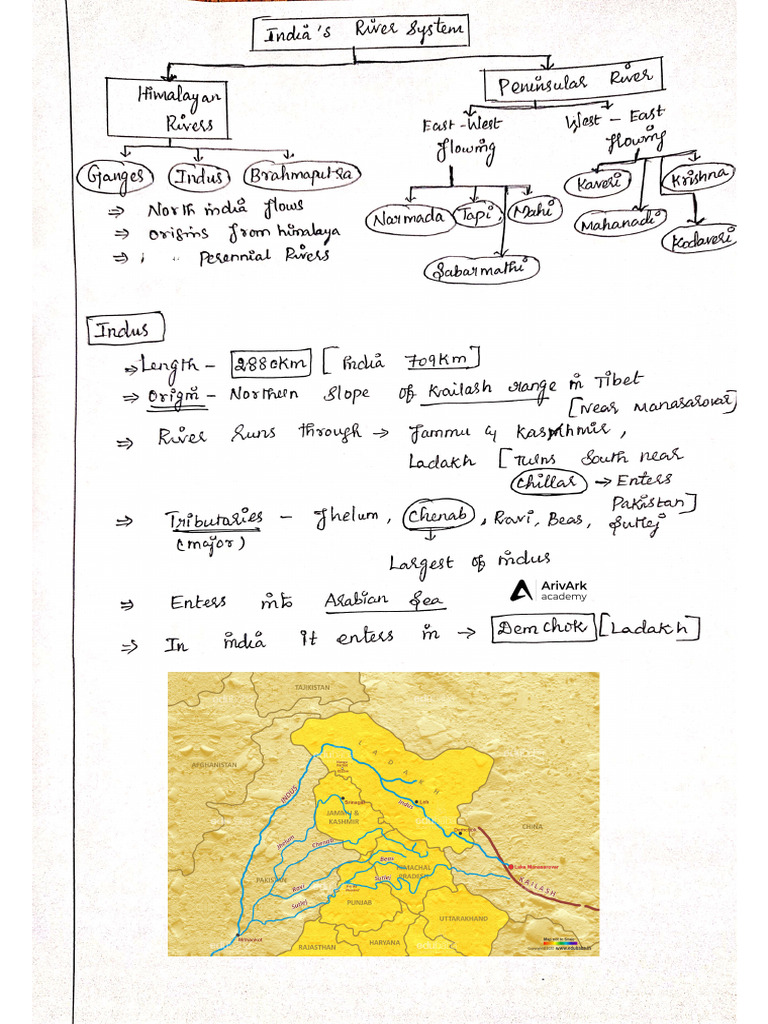 India's River System
Himalayan
Rivers
Peninsular River
East-West
flowing
West-East
flowing
Ganges
Indus
Brahmaputra
Narmada
Tapi,
Mahi
Sabarmathi
Kaveri
Krishna
Mahanadi
Kodaveri
⇒ North india flows
⇒ origins from himalaya
⇒ Perennial Rivers
Indus
⇒ Length - 2880km [India 709km]
⇒ Origin - Northern slope of Kailash range in Tibet
[Near Manasarovar]
⇒ River runs through → Jammu & Kashmir,
Ladakh [Turns South near
Chillar → Enters
Pakistan]
⇒ Tributaries - Jhelum, Chenab, Ravi, Beas, Sutlej
(major)
Largest of indus
ArivArk
academy
⇒ Enters into Arabian Sea
⇒ In india it enters in → Demchok [Ladakh]
TAJIKISTAN
AFGHANISTAN
LADAKH
INDUS
Indus
Leh
Srinagar
JAMMU &
KASHMIR
Demchok
CHINA
Jhelum
Chenab
Lake Manasarovar
Beas
HIMACHAL
PRADESH
KAILASH
PAKISTAN
Ravi
Sutlej
Sutlej
PUNJAB
UTTARAKHAND
Mithankot
HARYANA
RAJASTHAN
Map not to Scale